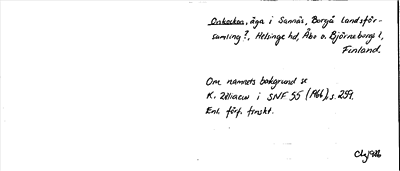 Onkocken, äga i Sannäs, Borgå landsför-
samling?, Helsinge hd, Åbo o. Björneborgs l,
Finland.
Om namnets bakgrund se
K. Zilliacus i SNF 55 (1966), s. 259.
Enl. förf. finskt.